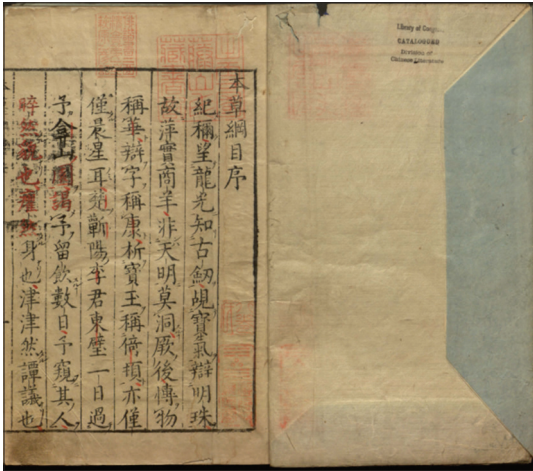 Library of Congress
CATALOGUED
DIVISION OF
Chinese Literature
本草綱目序
紀稱望龍光知古劒覘寶氣辯明珠
故萍實商羊非天明莫洞厥後博物
稱華辯字稱康析寶玉稱倚頓亦僅
僅晨星耳楚蘄陽李君東璧一日過
予弇山園謁予留飲數日予窺其人
睟然貌也癯然身也津津然譚議也